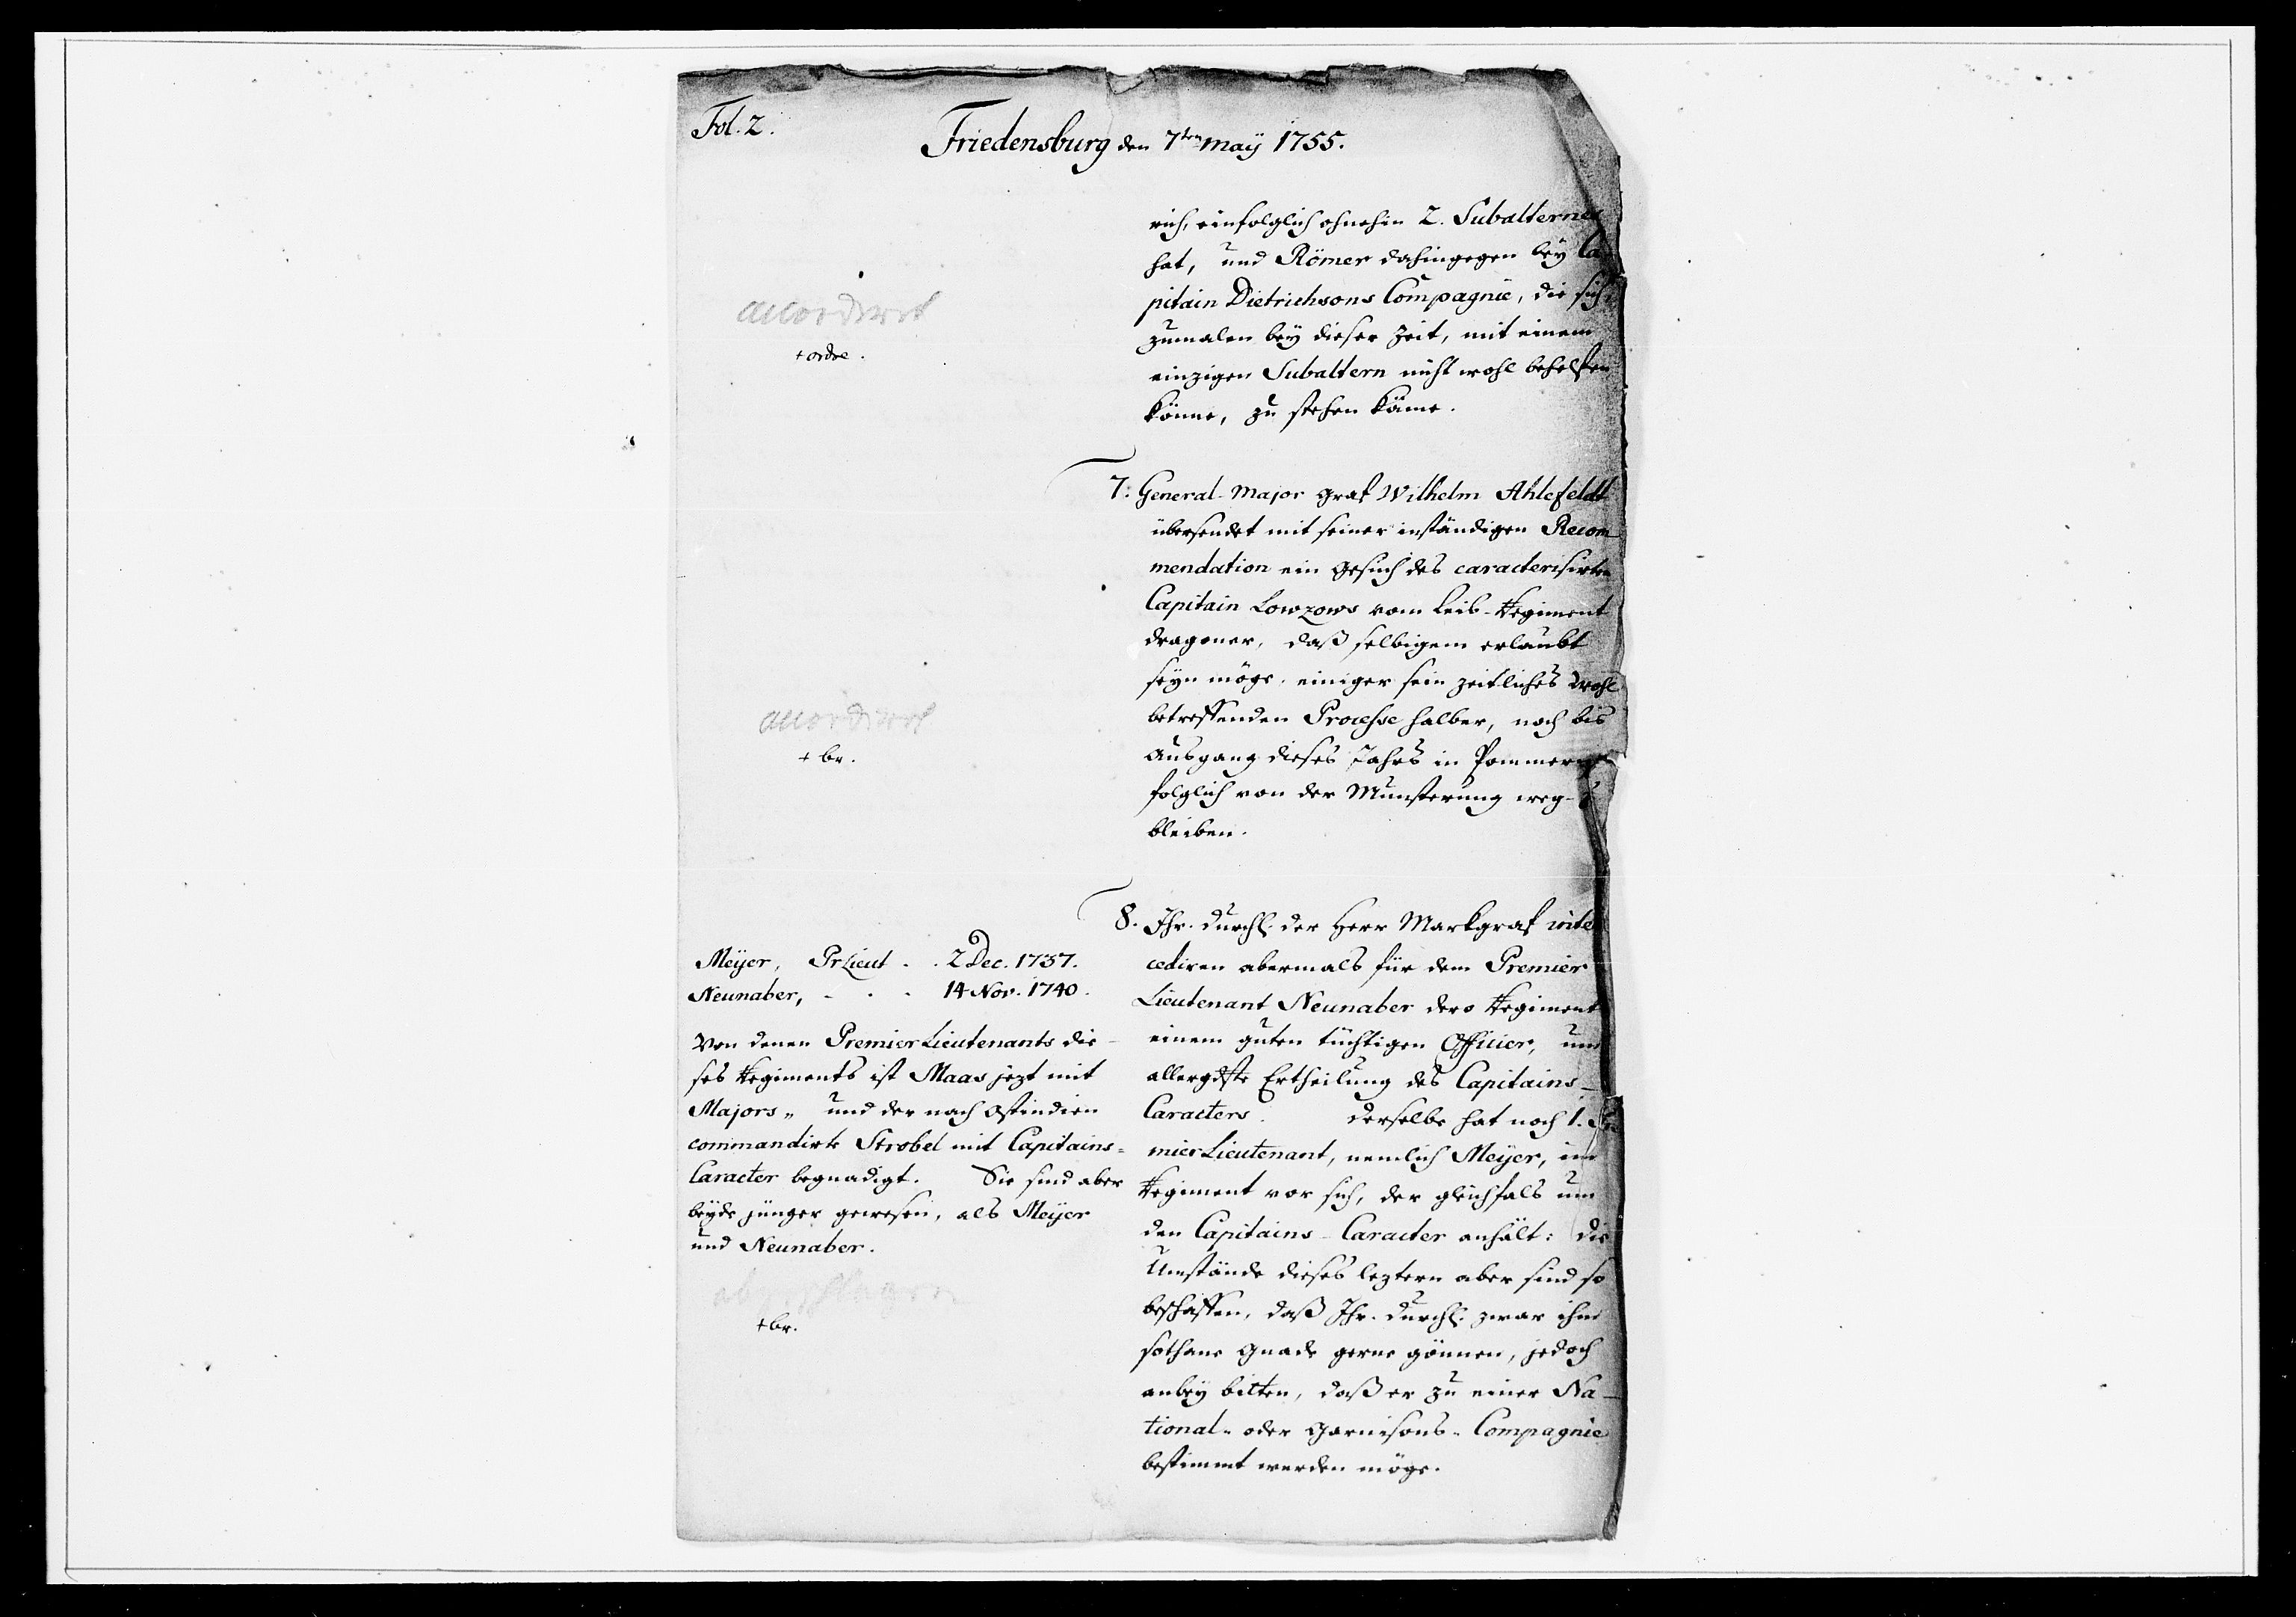 Fol. 2.
Friedensburg den 7ten may 1755.
rich, einfolglich ohnehin 2. Subalternes
hat, und Römer dahingegen bey Ca
pitain Dietrichsons Compagnie, die sich,
zumalen bey dieser Zeit, mit einem
einzigen Subaltern nicht wohl behelffen
könne, zu stehen käme.
accordiret
+ ordre.
7: General-Major Graf Wilhelm Ahlefeldt
übersendet mit seiner inständigen Recom
mendation ein Gesuch des caracterisirten
Capitain Lowzows vom Leib-Regiment
Dragoner, daß selbigem erlaubt
seyn möge, einiger sein zeitliches Wohl
betreffenden Processe halber, noch bis
Ausgang dieses Jahrs in Pommern
folglich von der Munsterung weg-
bleiben.
accordiret
+ br.
8. Ihr. Durchl. der Herr Markgraf inter
cediren abermals für dem Premier
Lieutenant Neunaber dero Regiment
einem guten tüchtigen Officier, um
allergdste Ertheilung des Capitains-
Caracters. Derselbe hat noch 1. Pre
mierLieutenant, nemlich Meyer, im
Regiment vor sich, der gleichfals um
den Capitains-Caracter anhält: die
Umstände dieses leztern aber sind so
beschaffen, daß Ihr. Durchl. zwar ihm
sothane Gnade gerne gönnen, jedoch
anbey bitten, daß er zu einer Na-
tional- oder Garnisons-Compagnie
bestimmt werden möge.
Meyer, PrLieut . . 2 Dec. 1737.
Neunaber, - . . 14 Nov. 1740.
Von denen PremierLieutenants die-
ses Regiments ist Maas jezt mit
Majors- und der nach Ostindien
commandirte Strobel mit Capitains-
Caracter begnadigt. Sie sind aber
beyde jünger gewesen, als Meyer
und Neunaber.
abgeschlagen
+ br.